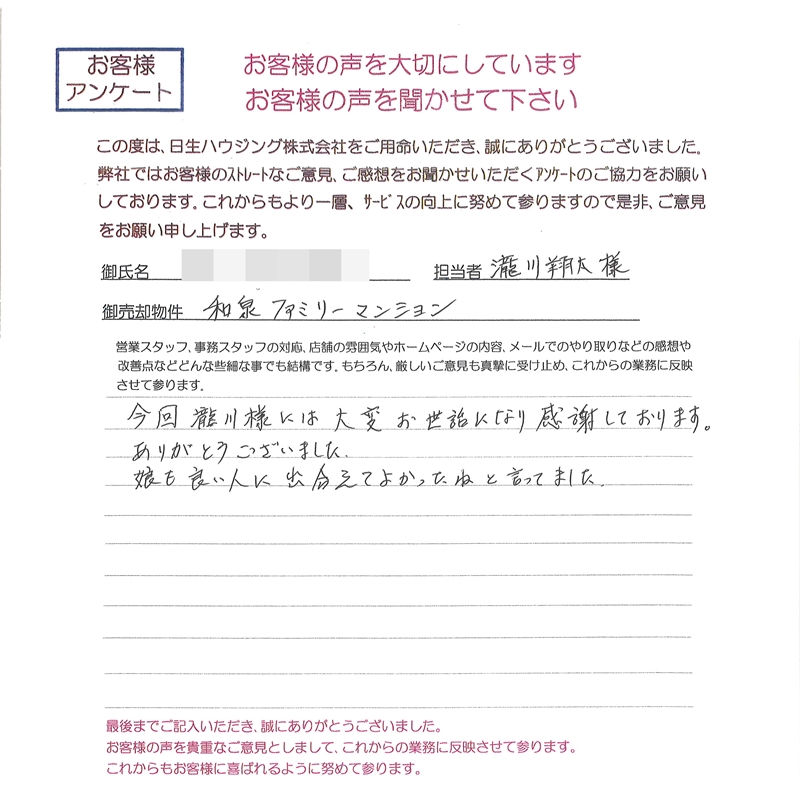 お客様
アンケート
お客様の声を大切にしています
お客様の声を聞かせて下さい
この度は、日生ハウジング株式会社をご用命いただき、誠にありがとうございました。
弊社ではお客様のｽﾄﾚｰﾄなご意見、ご感想をお聞かせいただくｱﾝｹｰﾄのご協力をお願い
しております。これからもより一層、ｻｰﾋﾞｽの向上に努めて参りますので是非、ご意見
をお願い申し上げます。
御氏名 担当者 瀧川翔太様
御売却物件 和泉ファミリーマンション
営業スタッフ、事務スタッフの対応、店舗の雰囲気やホームページの内容、メールでのやり取りなどの感想や
改善点などどんな些細な事でも結構です。もちろん、厳しいご意見も真摯に受け止め、これからの業務に反映
させて参ります。
今回 瀧川様には 大変 お世話になり 感謝しております。
ありがとうございました。
娘も良い人に出会えてよかったねと言ってました。
最後までご記入いただき、誠にありがとうございました。
お客様の声を貴重なご意見としまして、これからの業務に反映させて参ります。
これからもお客様に喜ばれるように努めて参ります。